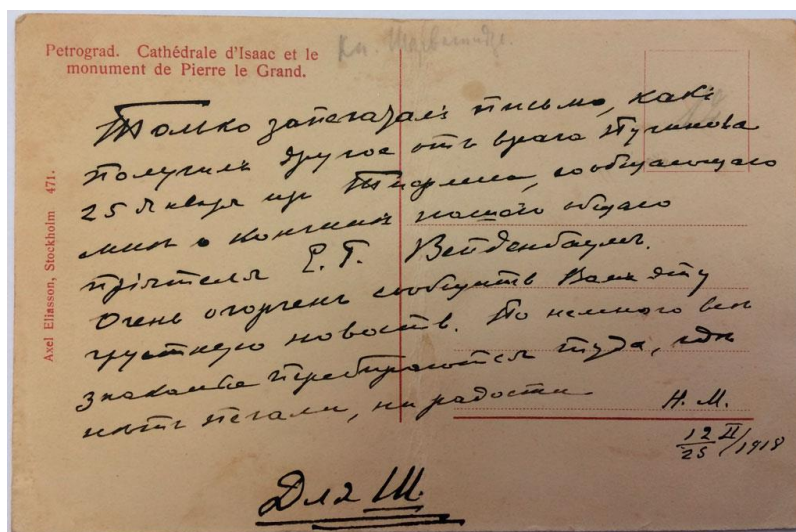 Petrograd. Cathédrale d'Isaac et le
monument de Pierre le Grand.
Axel Eliasson, Stockholm 471.
Только запечаталъ письмо, какъ
получилъ другое отъ врача Пушкова
25 Января изъ Тифлиса, сообщающаго
мнѣ о кончинѣ нашего общаго
пріятеля Е. Г. Вейденбаумъ.
Очень огорченъ сообщить Вамъ эту
грустную новость. По немногу всѣ
знакомые перебираются туда, гдѣ
нѣтъ печали, ни радости
Н. М.
12/25 II/1918
Для Ш.